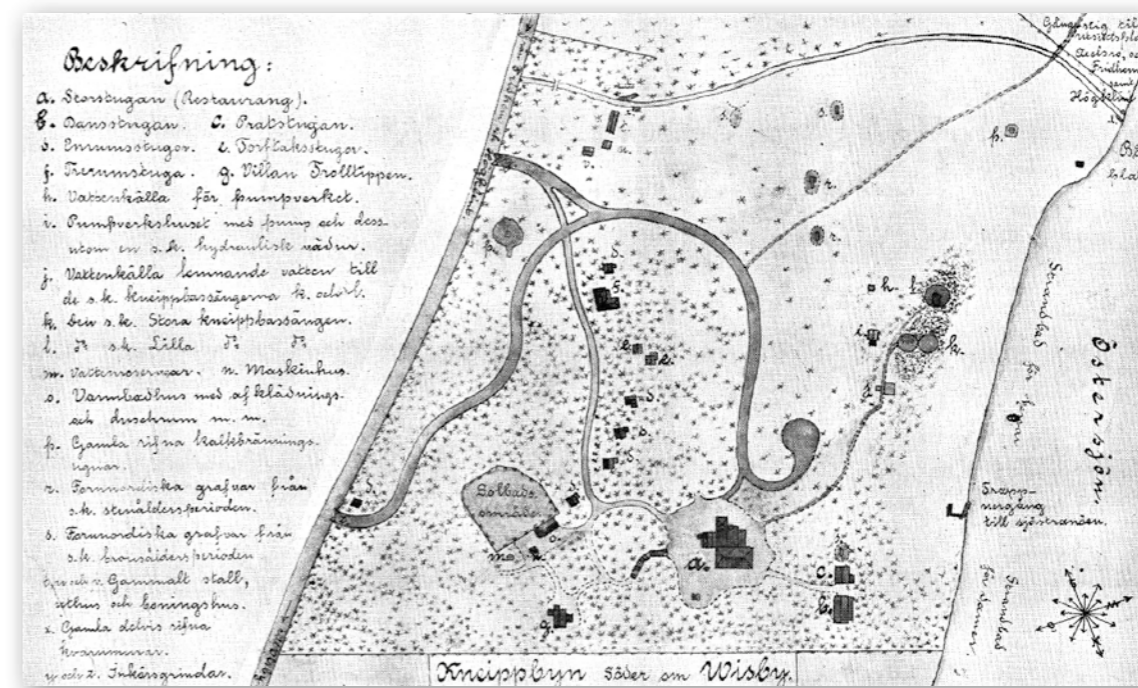 Beskrifning:
a. Storstugan (Restaurang).
b. Dansstugan. c. Pratstugan.
d. Enrumsstugor. e. Torftaksstugor.
f. Trerumstuga. g. Villan Trolltippen.
h. Vattenkälla för pumpverket.
i. Pumpverkshuset med pump och dess-
utom en s.k. hydraulisk vädur.
j. Vattenkälla lemnande vatten till
de s.k. kneippbassängerna k. och l.
k. Den s.k. Stora kneippbassängen.
l. do s.k. Lilla do do
m. Vattenreservoar. n. Maskinhus.
o. Varmbadhus med afklädnings-
och duschrum m. m.
p. Gamla rifna kalkbrännings-
ugnar.
r. Fornnordiska grafvar från
s.k. stenåldersperioden.
s. Fornnordiska grafvar från
s.k. bronsåldersperioden
och v. Gammalt stall,
uthus och boningshus.
x. Gamla delvis rifna
y. och z. Inkörsgrindar.
Gångstig till
Fridhem
samt
Högklint
Solbads
området
Östersjön
Strandbad för herrar
Trapp-
nergång
till sjöstranden.
Strandbad
för damer
Kneippbyn söder om Wisby.